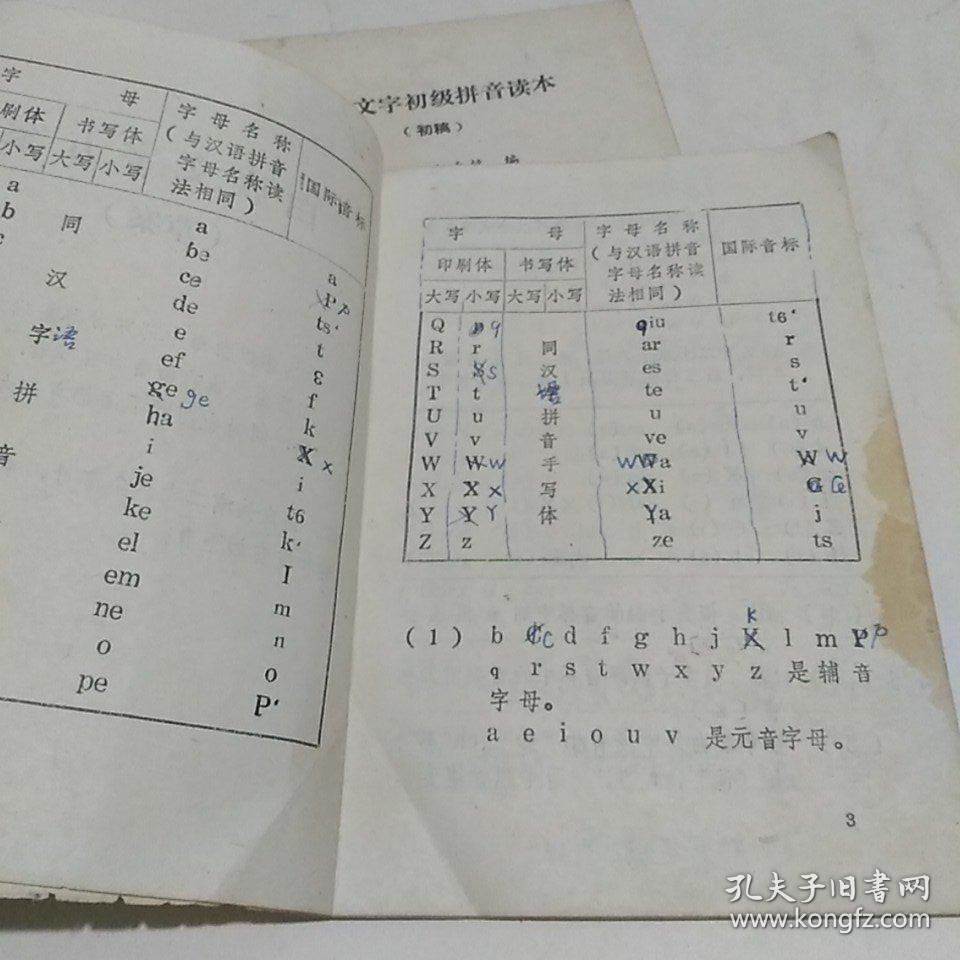 文字初级拼音读本
（初稿）
字 母
刷体 书写体
小写 大写 小写
字母名称
（与汉语拼音
字母名称读
法相同）
国际音标
a 同 a a
b be p p
c 汉 ce ts‘
de t
字 语 e ɛ
ef f
拼 ge ge k
ha x x
音 i i
je tɕ
ke k‘
el l
em m
ne n
o o
pe p‘
字 母
印刷体 书写体
大写 小写 大写 小写
字母名称
（与汉语拼音
字母名称读
法相同）
国际音标
Q q 同 qiu tɕ‘
R r ar r
S s 汉 es s
T t 语 te t‘
U u 拼 u u
V v 音 ve v
W W w 手 w Wa W W
X X x 写 x Xi ɕ ɕ
Y Y Y 体 Ya j
Z z ze ts
K
（1） b C c d f g h j K l m P p
q r s t w x y z 是辅音
字母。
a e i o u v 是元音字母。
3
孔夫子旧书网
www.kongfz.com